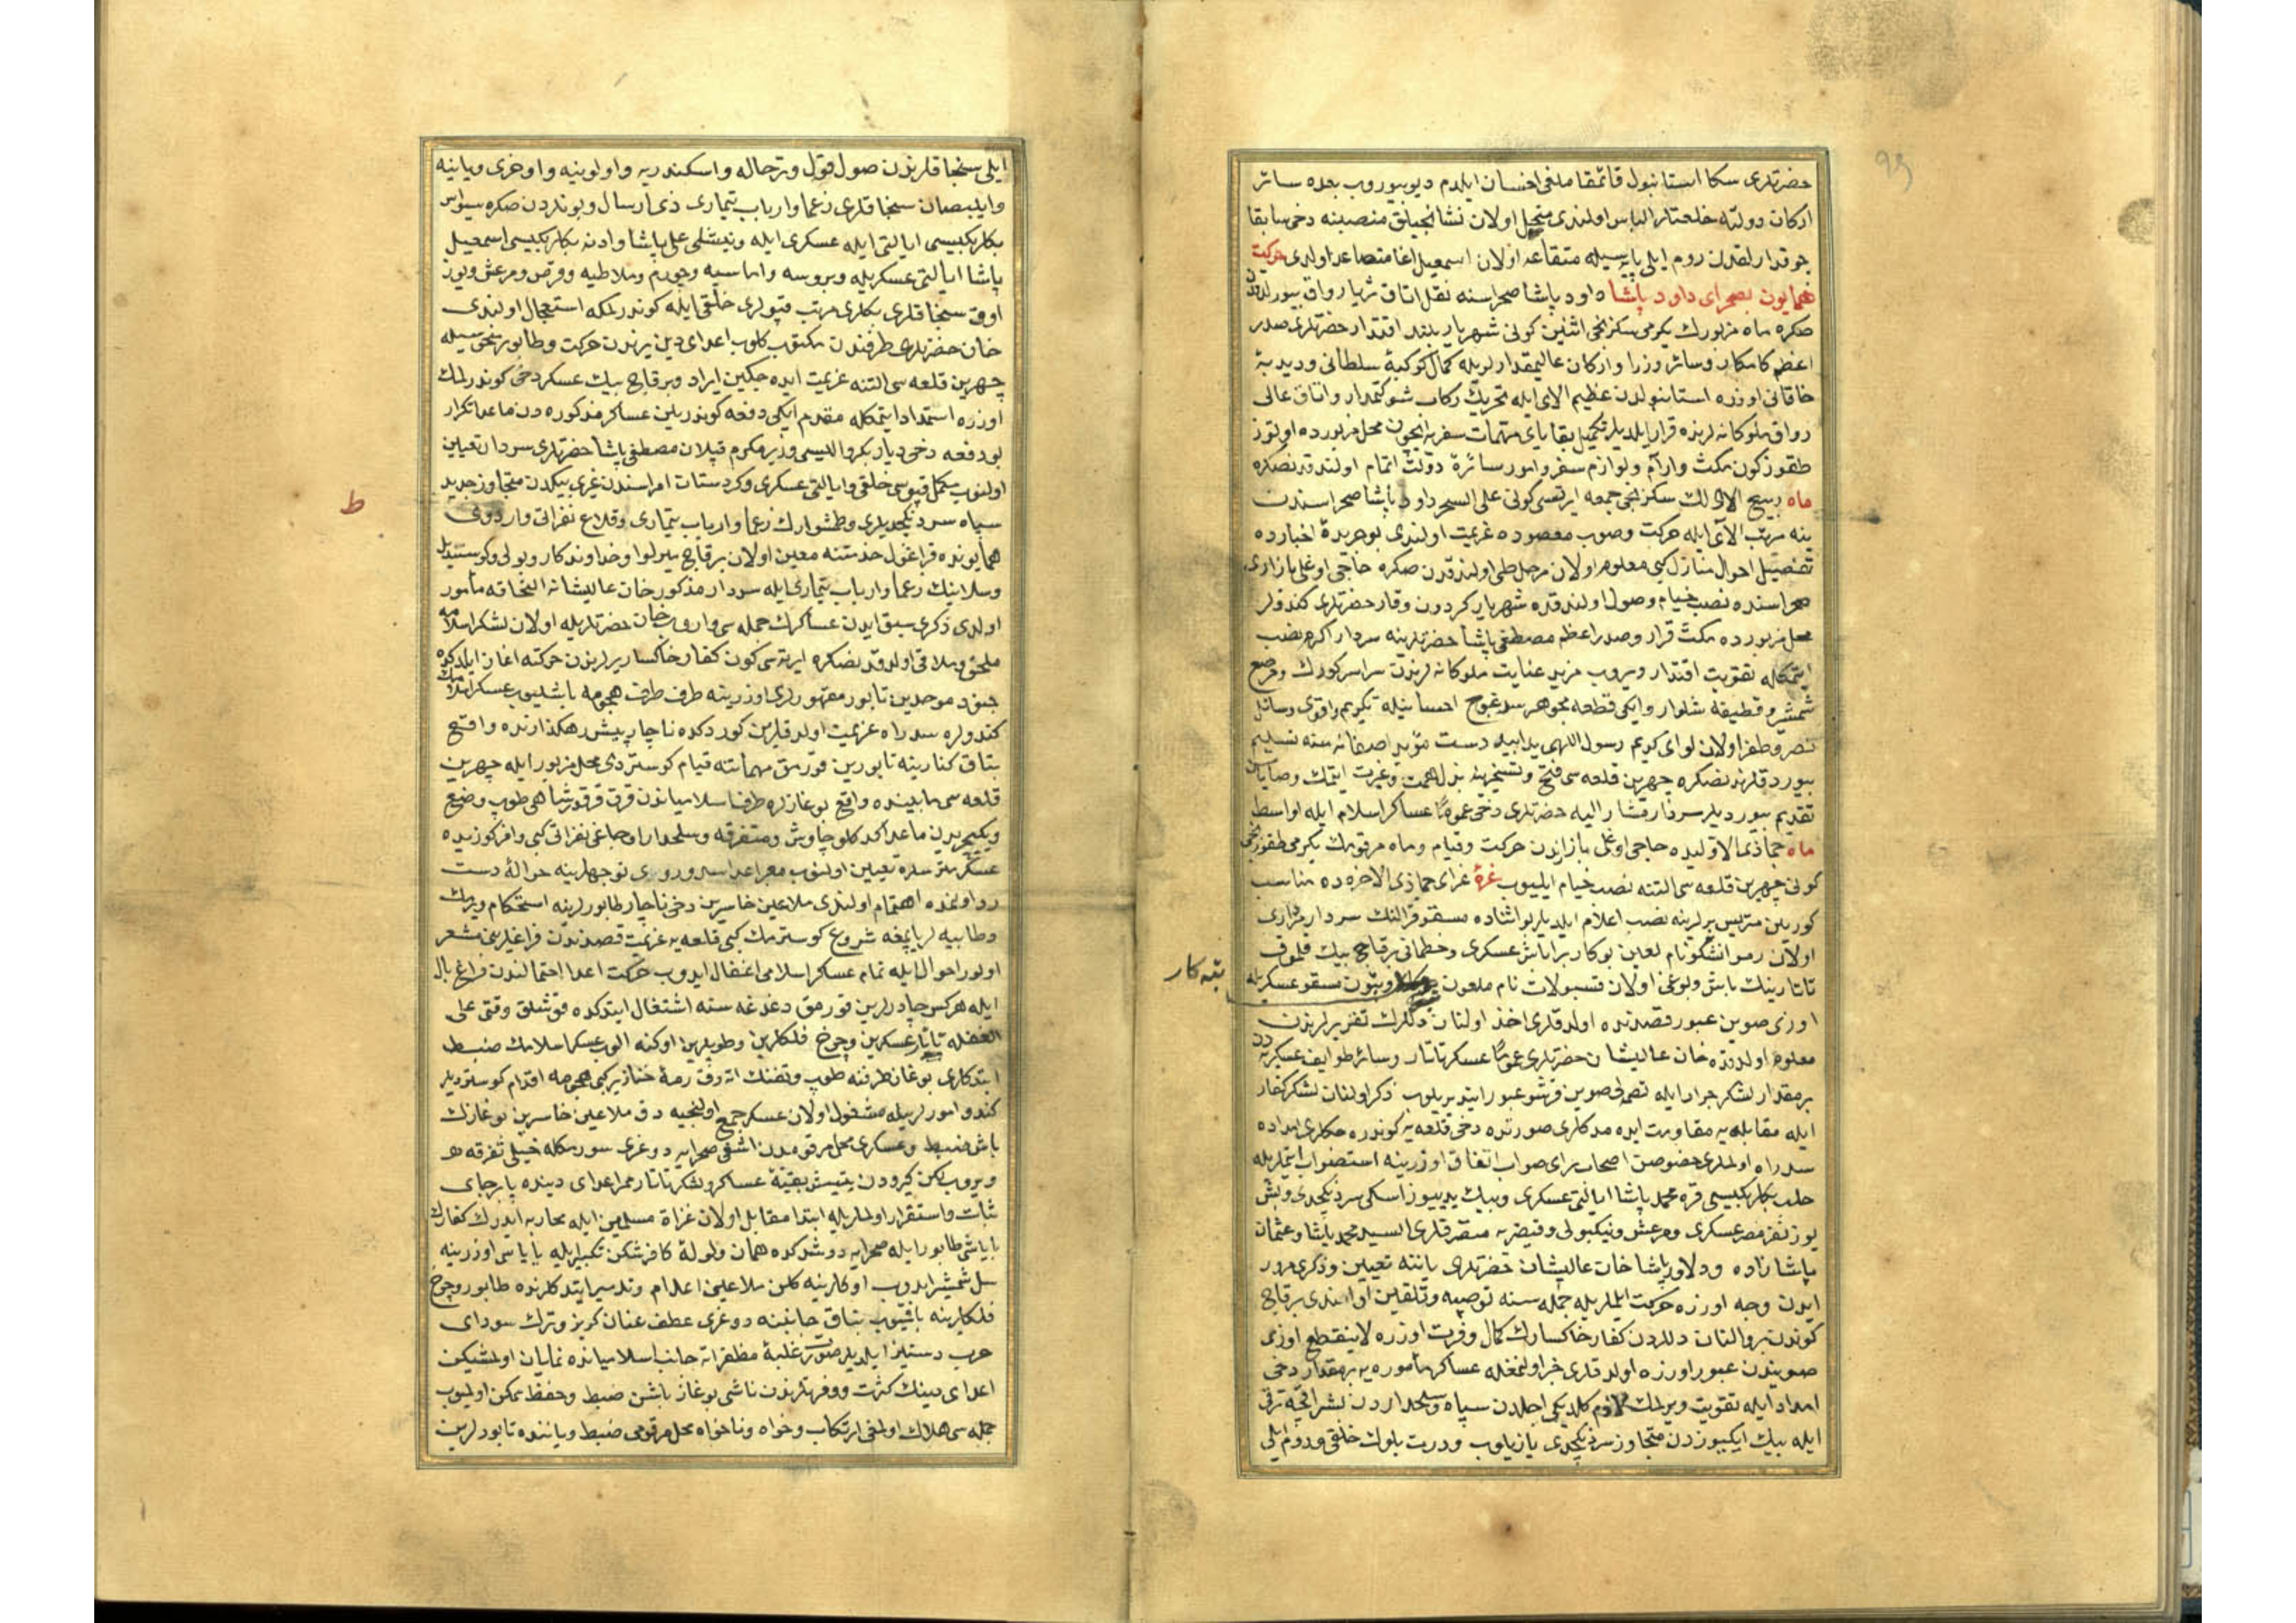 حضرتلری سكا استانبول قائمقاملغی احسان ایلدم دیو بیوروب بعده سائر
اركان دولته خلعتلر الباس اولندی منحل اولان نشانجیلق منصبنه دخی سابقا
چوقدارلقدن روم ایلی پایه‌سیله متقاعد اولان اسمعیل اغا متصاعد اولدی حركت
همایون بصحرای داود پاشا داود پاشا صحراسنه نقل اتاق ثریا رواق بیورلدقدن
صكره ماه مزبورك یكرمی سكزنجی اثنین كونی شهریار بلند اقتدار حضرتلری صدر
اعظم كامكار و سائر وزرا و اركان عالیمقدارلریله كمال كوكبهٔ سلطانی و دبدبهٔ
خاقانی اوزره استانبولدن عظیم الای ایله تحریك ركاب شوكتمدار و اتاق عالی
رواق ملوكانه‌لرنده قرار ایلدیلر تكمیل بقایای مهمات سفریه ایچون محل مزبورده اوتوز
طقوز كون مكث و ارام و لوازم سفر و امور سائرهٔ دولت اتمام اولندقدنصكره
ماه ربیع الاولك سكزنجی جمعه ایرتسی كونی علی السحر داود پاشا صحراسندن
ینه مرتب الای ایله حركت و صوب مقصوده عزیمت اولندی بو جریدهٔ اخبارده
تفصیل احوال منازل كبی معلوم اولان مراحل طی اولندقدن صكره حاجی اوغلی بازاری
صحراسنده نصب خیام وصول اولندقده شهریار كردون وقار حضرتلری كندولر
محل مزبورده مكث قرار و صدر اعظم مصطفی پاشا حضرتلرینه سردار اكرم نصب
ایتمكله تقویت اقتدار ویروب مزید عنایت ملوكانه‌لرندن سراسر كورك و مرصع
شمشیر و قطیفه شلوار و ایكی قطعه مجوهر سرغوج احسانیله تكریم و اقوی وسائل
نصر و ظفر اولان لوای كریم رسول اللهی ید ابید دست مؤید اصفانه‌سنه تسلیم
بیوردقلرندنصكره چهرین قلعه‌سی فتح و تسخیرینه بذل همت و غیرت ایتمك وصایاسن
تقدیم بیوردیلر سردار مشار الیه حضرتلری دخی عموما عساكر اسلام ایله اواسط
ماه جماذی الاولیده حاجی اوغلی بازارندن حركت و قیام و ماه مرقومك یكرمی طقوزنجی
كونی چهرین قلعه‌سی التنه نصب خیام ایلیوب غرهٔ غرای جماذی الاخره‌ده مناسب
كوریلن متریس یرلرینه نصب اعلام ایلدیلر بو اثناده مسقو قرالنك سردار مزاری
اولان رموانشكو نام لعین بوكار بر ایاش عسكری و خطمانی برقاچ بیك قلموق
تاتارینك باش و بوغی اولان قسبولات نام ملعون و بتون مسقو عسكریله
بتبه كار
اوزی صوین عبور قصدنده اولدقلری اخذ اولنان دللرك تقریرلرندن
معلوم اولدقده خان عالیشان حضرتلری عموما عسكر تاتار و سائر طوایف عسكریه‌دن
بر مقدار لشكر جرار ایله تصملی صوین قرشو عبور ایتدیریلوب ذكر اولنان لشكر كفار
ایله مقابله‌یه مقاومت ایده‌مدكلری صورتده دخی قلعه‌یه كوندره‌جكلری امداده
سد راه اولملری خصوصن اصحاب رای صواب اتفاق اوزرینه استصواب ایتملریله
حلب بكلربكیسی قره محمد پاشا ایالتی عسكری و بیك یدییوز اسكی سردنكچدی و بش
یوز نفر مصر عسكری و مرعش و نیكبولی و قیصریه متصرفلری السید محمد پاشا و عثمان
پاشا زاده و دلاور پاشا خان عالیشان حضرتلری یاننه تعیین و ذكری مرور
ایدن وجه اوزره حركت ایلملریله جمله‌سنه توصیه و تلقین اولندی برقاچ
كوندن برو النان دللردن كفار خاكسارك كمال وفرت اوزره لاینقطع اوزی
صویندن عبور اوزره اولدقلری خبر اولنمغله عساكر مأموره‌یه بر مقدار دخی
امداد ایله تقویت ویرلمك لازم كلدیكی اجلدن سپاه و سلحداردن بشر اقچه ترقی
ایله بیك ایكییوزدن متجاوز سردنكچدی یازیلوب و درت بلوك خلقی و روم ایلی
ایلی سنجاقلرندن صول قول و ترحاله و اسكندریه و اولونیه و اوخری و یانیه
و ایلبصان سنجاقلری زعما و ارباب تیماری ذی ارسال و بونلردن صكره سیواس
بكلربكیسی ایالتی ایله عسكری ایله و نیشلی علی پاشا و ادنه بكلربكیسی اسمعیل
پاشا ایالتی عسكریله و بروسه و اماسیه و چورم و ملاطیه و قرص و مرعش و یوز
اوق سنجاقلری بكلری مرتب قپولری خلقی ایله كوندرلمكه استعجال اولندی
خان حضرتلری طرفندن مكتوب كلوب اعدای دین یرندن حركت و طابور نحوستیله
چهرین قلعه‌سی التنه عزیمت ایده‌جكین ایراد و برقاچ بیك عسكر دخی كوندرلمك
اوزره استمداد ایتمكله مقدم ایكی دفعه كوندریلن عساكر مذكوره‌دن ماعدا تكرار
بو دفعه دخی دیاربكر والیسی وزیر مكرم قپلان مصطفی پاشا حضرتلری سردار تعیین
اولنوب مكمل قپوسی خلقی و ایالتی عسكری و كردستان امراسندن غیری بیكدن متجاوز جدید
ط
سپاه سردنكچدیلری و طشوارك زعما و ارباب تیماری و قلاع نفراتی و اردوی
همایونده قراغول خدمتنه معین اولان برقاچ میرلوا و خداوندكار و بولی و كوستندیل
و سلانیك زعما و ارباب تیماری ایله سردار مذكور خان عالیشانه التحاقه مأمور
اولدی ذكری سبق ایدن عساكرك جمله‌سی واروب خان حضرتلریله اولان لشكر اسلامه
ملحق و ملاقی اولدقدنصكره ایرته‌سی كون كفار خاكسار یرلرندن حركته اغاز ایلدكده
جنود موحدین تابور مقهورلری اوزرینه طرف طرف هجومه باشلیوب عسكر اسلامك
كندولره سد راه عزیمت اولدقلرین كوردكده ناچار پیش رهكذارنده واقع
بتاق كنارینه تابورین قورمق مهماتنه قیام كوستردی محل مزبور ایله چهرین
قلعه‌سی مابیننده واقع بوغازلره طرف اسلامیاندن قرق قدر شاهی طوپ وضع
و یكیچریدن ماعدا كدكلو چاوش و متفرقه و سلحدار اوجاغی نفراتی كبی وافر كوزیده
عسكر متریسلره تعیین اولنوب ممر اعدا سد و روی توجهلرینه حوالهٔ دست
رد اولنمده اهتمام اولندی ملاعین خاسرین دخی ناچار طابورلرینه استحكام ویرمك
و طابیه‌لر یاپمغه شروع كوسترمك كبی قلعه‌یه عزیمت قصدندن فراغلرینی مشعر
اولور احوال ایله تمام عسكر اسلامی اغفال ایدوب حركت اعدا احتمالندن فراغ بال
ایله هركس چادرلرین قورمق دغدغه‌سنه اشتغال ایتدكده قوشلق وقتی علی
الغفله تاتار عسكرین و چرخ فلكلرین و طوپلرین اوكنه الوب عسكر اسلامك ضبط
ایتدكلری بوغاز طرفنه طوپ و تفنك اته‌رق رمهٔ خنازیر كبی هجومه اقدام كوستردیلر
كندو امورلریله مشغول اولان عسكر جمع اولنجیه دق ملاعین خاسرین بوغازك
باشن ضبط و عسكری محل مرقومدن اشغی صحرایه دوغری سورمكله خیلی تفرقه‌لر
ویروب لكن كیرودن یتیشن بقیهٔ عساكر و لشكر تاتار ممر اعدای دینده پابرجای
ثبات و استقرار اولملریله ابتدا مقابل اولان غزاة مسلمین ایله محاربه ایدرك كفارك
بایاشی طابور ایله صحرایه دوشدكده همان ولولهٔ كافر شكن تكبیرلریله بایاسی اوزرینه
سل شمشیر ایدوب اوكلرینه كلن ملاعینی اعدام و تدمیر ایتدكلرنده طابور و چرخ
فلكلرینه باقیوب بتاق جانبنه دوغری عطف عنان كریز و ترك سودای
حرب و ستیز ایلدیلر صورت غلبهٔ مظفرانه جانب اسلامیانده نمایان اولمشیكن
اعدای دینك كثرت و وفرتلرندن ناشی بوغاز باشن ضبط و حفظ ممكن اولمیوب
جمله‌سی هلاك اولمغی ارتكاب و خواه و ناخواه محل مرقومی ضبط و یاننده تابورلرین